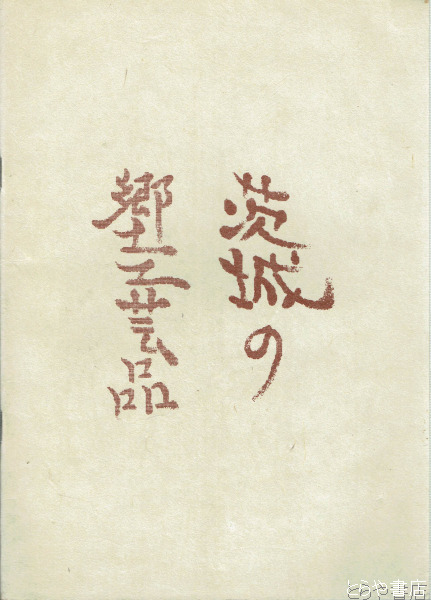 茨城の
郷土工芸品
とらや書店